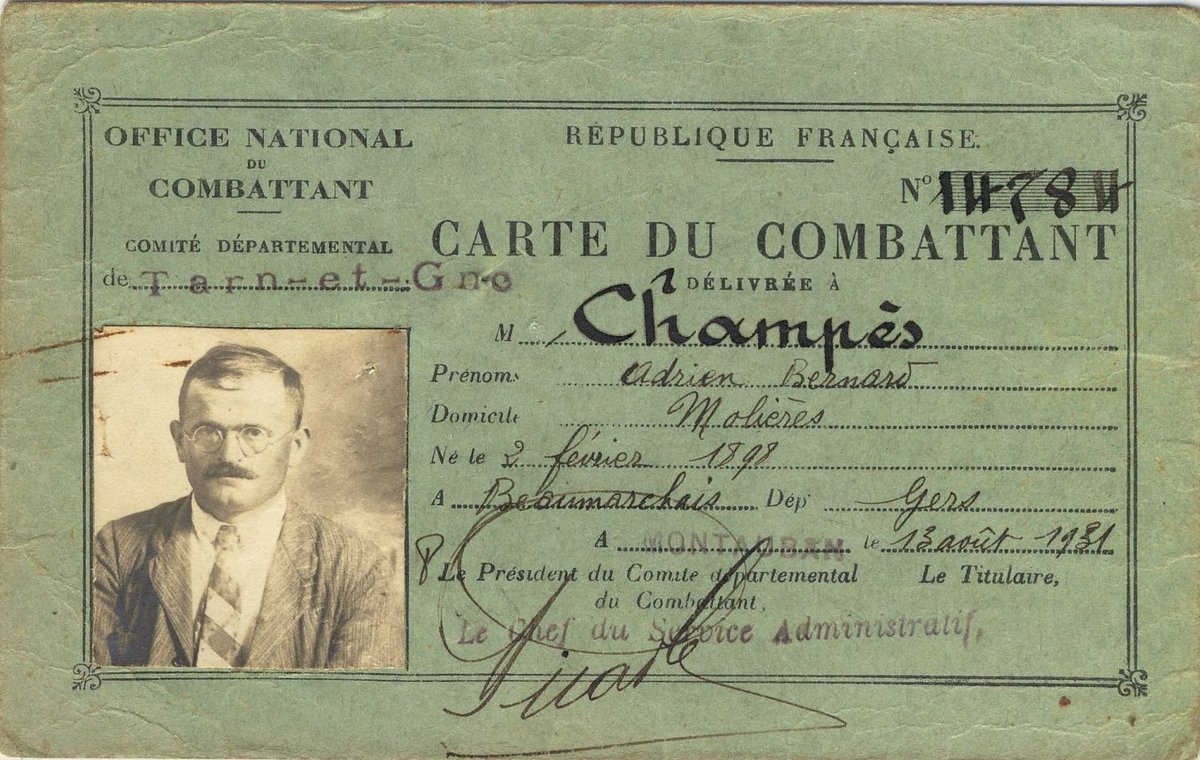 OFFICE NATIONAL
DU
COMBATTANT
COMITÉ DÉPARTEMENTAL
de Tarn-et-Gne
RÉPUBLIQUE FRANÇAISE.
Nº 14784
CARTE DU COMBATTANT
DÉLIVRÉE À
M Champès
Prénoms Adrien Bernard
Domicile Molières
Né le 2 février 1898
A Beaumarchais Dépt Gers
A MONTAUBAN le 13 août 1931
P Le Président du Comité départemental
du Combattant,
Le Titulaire,
Le Chef du Service Administratif,